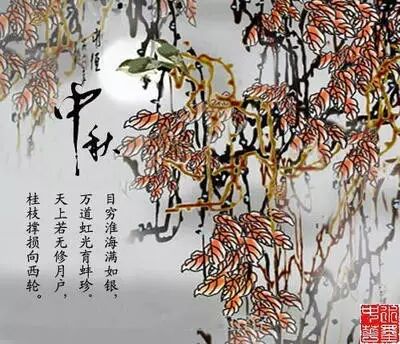 中秋
目穷淮海满如银，
万道虹光育蚌珍。
天上若无修月户，
桂枝撑损向西轮。